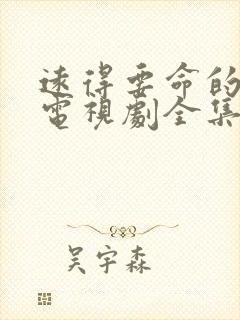 遠得要命的
電視劇全集
吴宇森